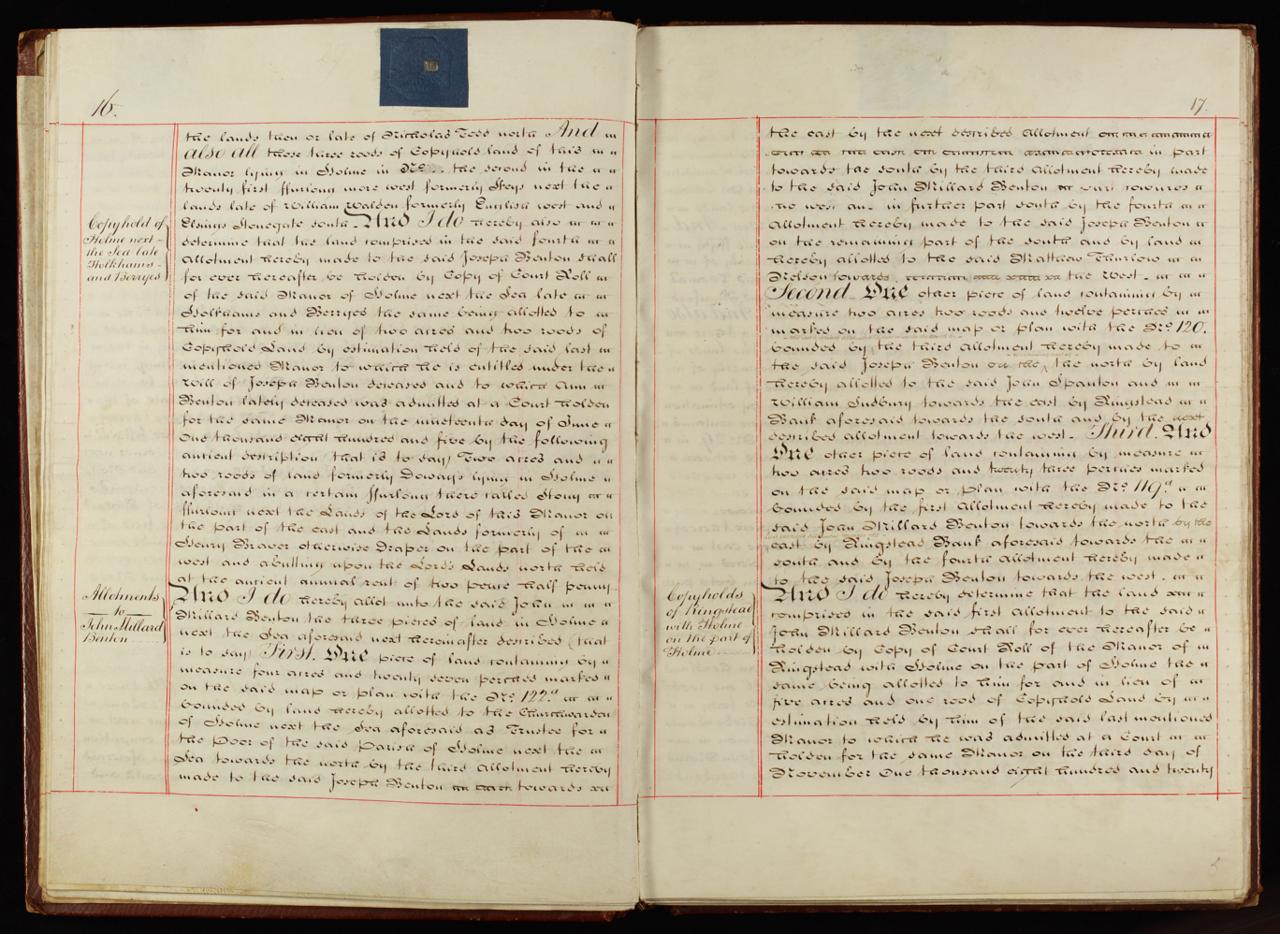 16.
the lands then or late of Nicholas Tedd north And
also all those three roods of Copyhold land of this
Manor lying in Holme in No. the second in the
twenty first ffurlong more west formerly Steys next the
lands late of William Walden formerly English west and
Elsings Stonegate south. And I do hereby also
determine that the land comprised in the said fourth
allotment hereby made to the said Joseph Benton shall
for ever hereafter be holden by Copy of Court Roll
of the said Manor of Holme next the Sea late
Holkhams and Berrys the same being allotted to
him for and in lieu of two acres and two roods of
Copyhold Land by estimation held of the said last
mentioned Manor to which he is entitled under the
Will of Joseph Benton deceased and to which Ann
Benton lately deceased was admitted at a Court holden
for the same Manor on the nineteenth day of June
One thousand eight hundred and five by the following
ancient description that is to say) Two acres and
two roods of land formerly Doways lying in Holme
aforesaid in a certain ffurlong there called Stony
ffurlong next the Lands of the Lord of this Manor on
the part of the east and the Lands formerly of
Henry Braver otherwise Draper on the part of the
west and abutting upon the Lord's Lands north held
at the ancient annual rent of two pence half penny
And I do hereby allot unto the said John
Millard Benton the three pieces of land in Holme
next the Sea aforesaid next hereinafter described (that
is to say) First. One piece of land containing by
measure four acres and twenty seven perches marked
on the said map or plan with the No. 122a
bounded by land hereby allotted to the Churchwarden
of Holme next the Sea aforesaid as Trustee for
the Poor of the said Parish of Holme next the
Sea towards the north by the third allotment hereby
made to the said Joseph Benton towards
Copyhold of
Holme next
the Sea late
Holkhams
and Berrys
Allotments
to
John Millard
Benton
17.
the east by the next described allotment
in part
towards the south by the third allotment hereby made
to the said John Millard Benton
in further part south by the fourth
allotment hereby made to the said Joseph Benton
on the remaining part of the south and by land
hereby allotted to the said Matthew Thurlow
Nelson towards the West.
Second One other piece of land containing by
measure two acres two roods and twelve perches
marked on the said map or plan with the No. 120.
bounded by the third allotment hereby made to
the said Joseph Benton on the north by land
hereby allotted to the said John Spanton and
William Sudbury towards the east by Ringstead
Bank aforesaid towards the south and by the next
described allotment towards the west. Third. And
One other piece of land containing by measure
two acres two roods and twenty three perches marked
on the said map or plan with the No. 119a
bounded by the first allotment hereby made to the
said John Millard Benton towards the north by the
east by Ringstead Bank aforesaid towards the
south and by the fourth allotment hereby made
to the said Joseph Benton towards the west.
And I do hereby determine that the land
comprised in the said first allotment to the said
John Millard Benton shall for ever hereafter be
holden by Copy of Court Roll of the Manor of
Ringstead with Holme on the part of Holme the
same being allotted to him for and in lieu of
five acres and one rood of Copyhold Land by
estimation held by him of the said last mentioned
Manor to which he was admitted at a Court
holden for the same Manor on the third day of
November One thousand eight hundred and twenty
Copyholds
of Ringstead
with Holme
on the part of
Holme